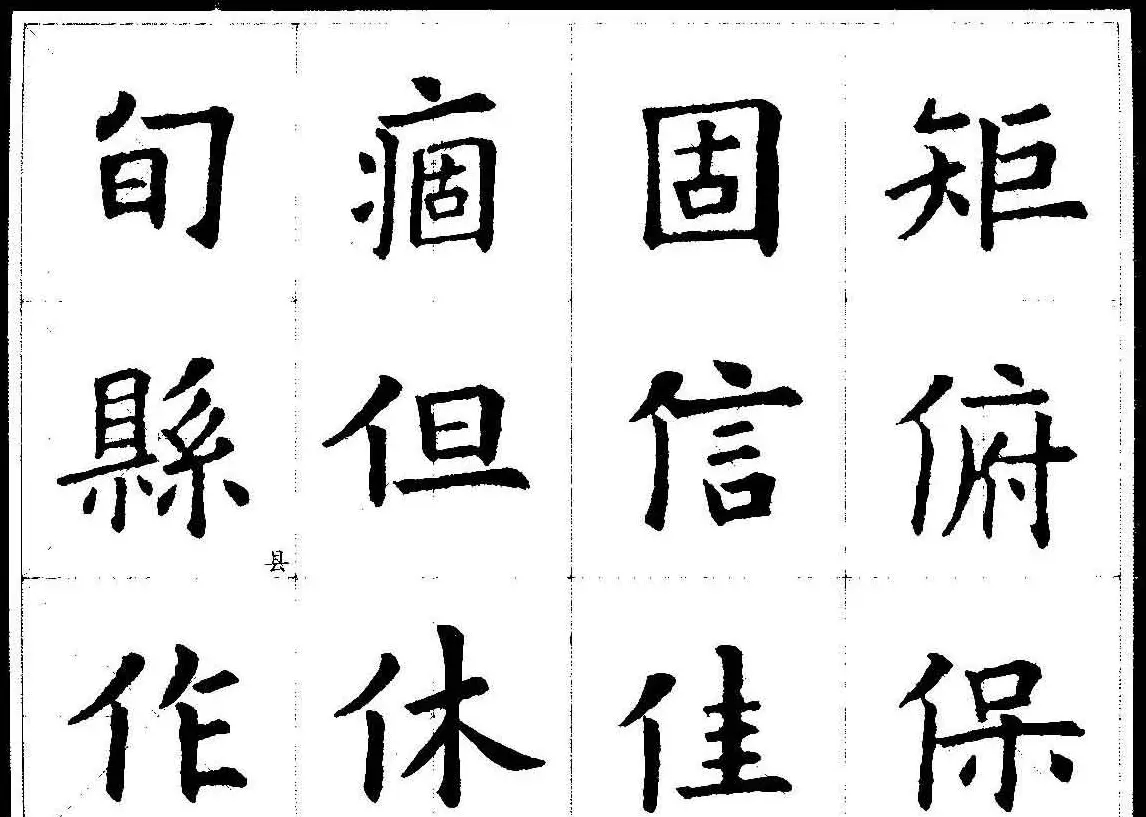 旬痼固矩
縣但信俯
县
作休佳保